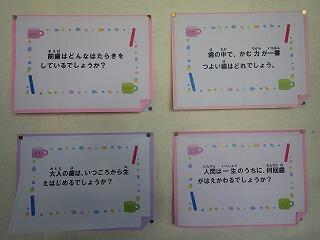 前歯はどんなはたらきを
しているでしょうか?
歯の中で、かむ力が一番
つよい歯はどれでしょう。
大人の歯は、いつごろから生
えはじめるでしょうか?
人間は一生のうちに、何回歯
がはえかわるでしょうか?